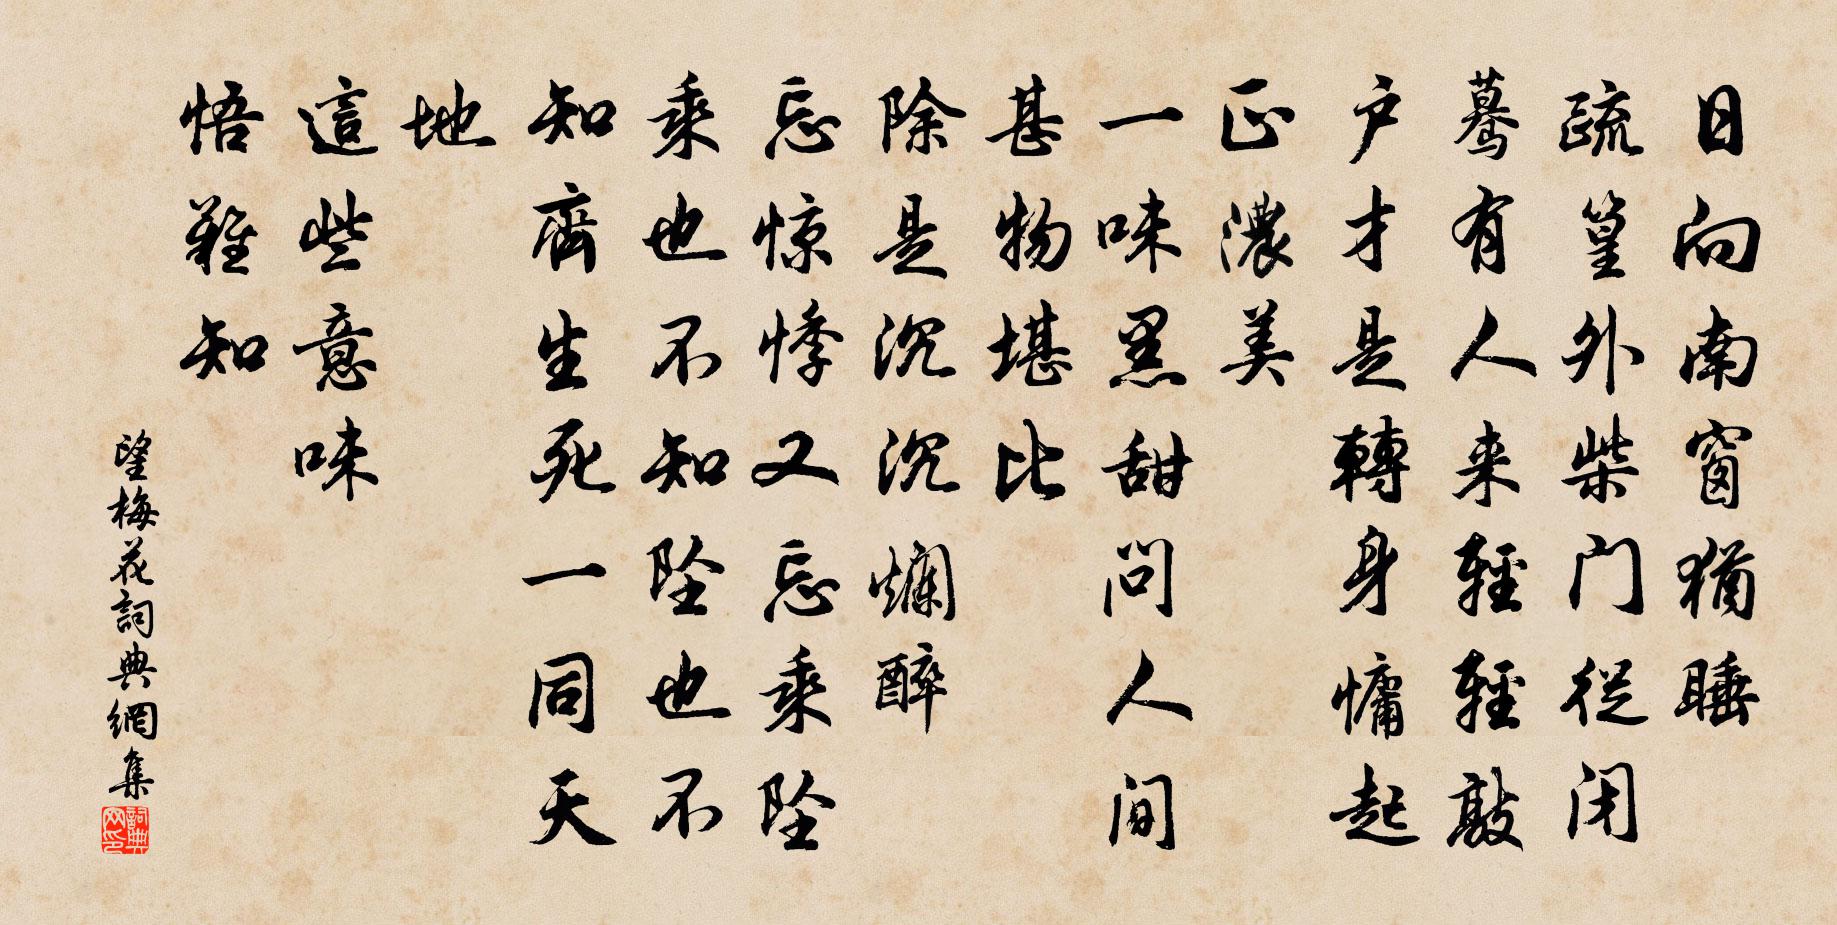 日向南窗犹睡
疏篁外柴门從闭
蓦有人来輕輕敲
户才是轉身慵起
正濃美
一味黑甜问人间
甚物堪比
除是沉沉爛醉
忘惊悸又忘乘坠
乘也不知坠也不
知齊生死一同天
地
這些意味
悟難知
望梅花詞典網集
詞典网印